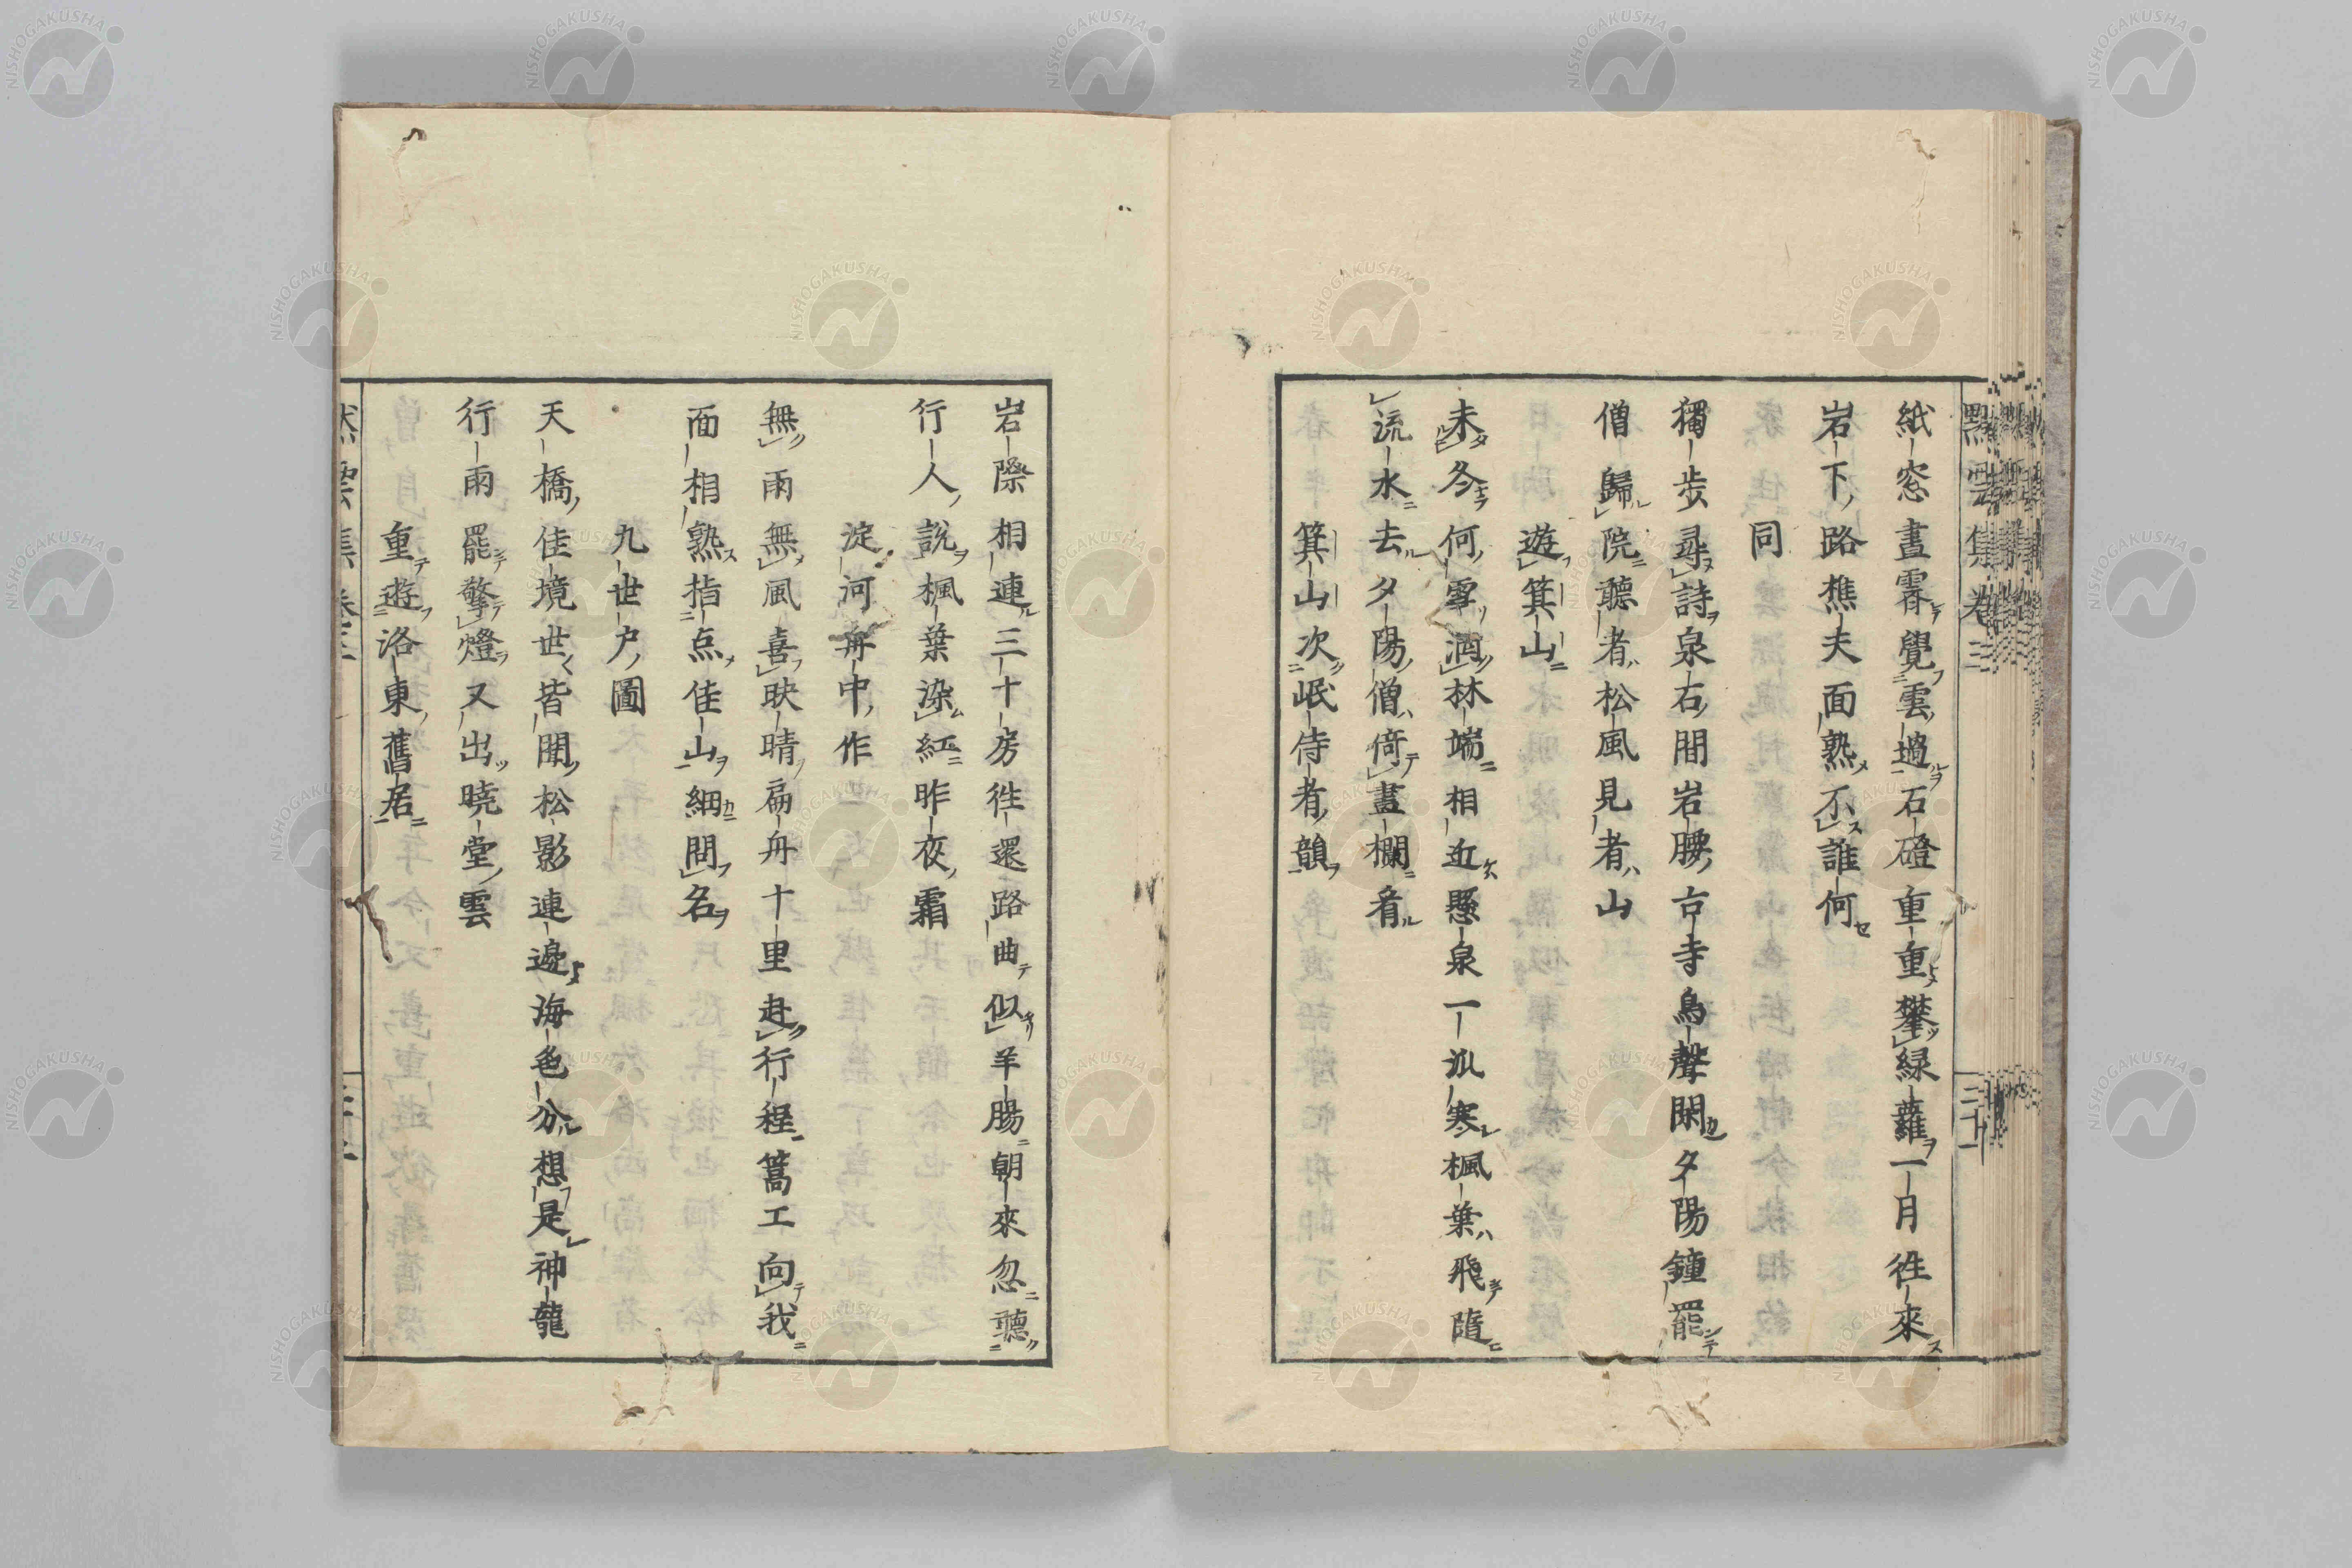 紙窓晝霽覺雲過石磴重重攀緑蘿一月徃來
岩下路樵夫面熟不誰何
同
獨歩尋詩泉石間岩腰古寺鳥聲閑夕陽鐘罷
僧歸院聽者松風見者山
遊箕山
未冬何處洒林端相近懸泉一派寒楓葉飛隨
流水去夕陽僧倚畫欄看
箕山次岷侍者韻
岩際相連三十房徃還路曲似羊腸朝來忽聽
行人説楓葉染紅昨夜霜
淀河舟中作
無雨無風喜映晴扁舟十里赴行程篙工向我
面相熟指点佳山細問名
九世戸圖
天橋佳境世皆聞松影連邊海色分想是神龍
行雨罷擎燈又出曉堂雲
重遊洛東舊居
NISHOGAKUSHA